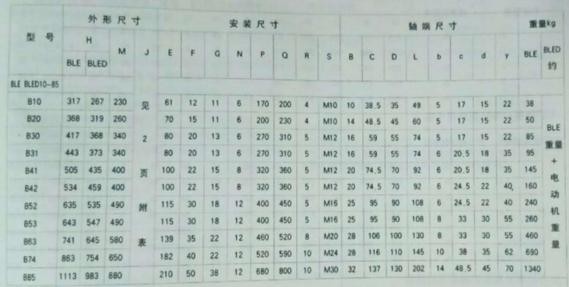 型 号 外 形 尺 寸 安 装 尺 寸 轴 端 尺 寸 重量kg
H M J E F G N P Q R S B C D L b c d y BLE BLED
BLE BLED 约
BLE BLED10-85
B10 317 267 230 61 12 11 6 170 200 4 M10 10 38.5 35 49 5 17 15 22 38
B20 368 319 260 70 15 11 6 200 230 4 M10 14 48.5 45 60 5 17 15 22 50
B30 417 368 340 80 20 13 6 270 310 5 M12 16 59 55 74 5 17 15 22 85
B31 443 373 340 80 20 13 6 270 310 5 M12 16 59 55 74 6 20.5 18 35 95
B41 505 435 400 100 22 15 8 320 360 5 M12 20 74.5 70 92 6 20.5 18 35 145
B42 534 459 400 100 22 15 8 320 360 5 M12 20 74.5 70 92 6 24.5 22 40 160
B52 635 535 490 115 30 18 12 400 450 5 M16 25 95 90 108 6 24.5 22 40 240
B53 643 547 490 115 30 18 12 400 450 5 M16 25 95 90 108 8 33 30 55 260
B63 741 645 580 139 35 22 12 460 520 8 M20 28 106 100 130 8 33 30 55 460
B74 863 754 650 182 40 22 12 520 590 10 M24 28 116 110 145 10 38 35 62 690
B85 1113 983 880 210 50 38 12 680 800 10 M30 32 137 130 202 14 48.5 45 70 1340
见 2 页 附 表
BLE 重量 + 电 动 机 重 量